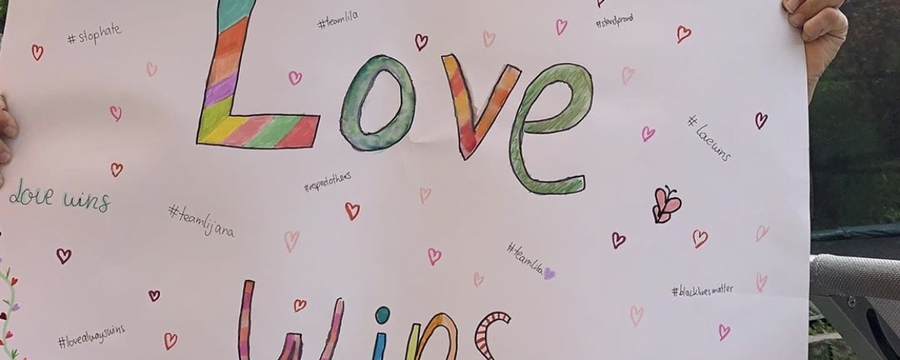 #stophate
#teamlila
#standproud
Love
#Lovewins
#respectothers
Love wins
#teamlijana
#teamlila
#blacklivesmatter
Wins
#lovealwayswins